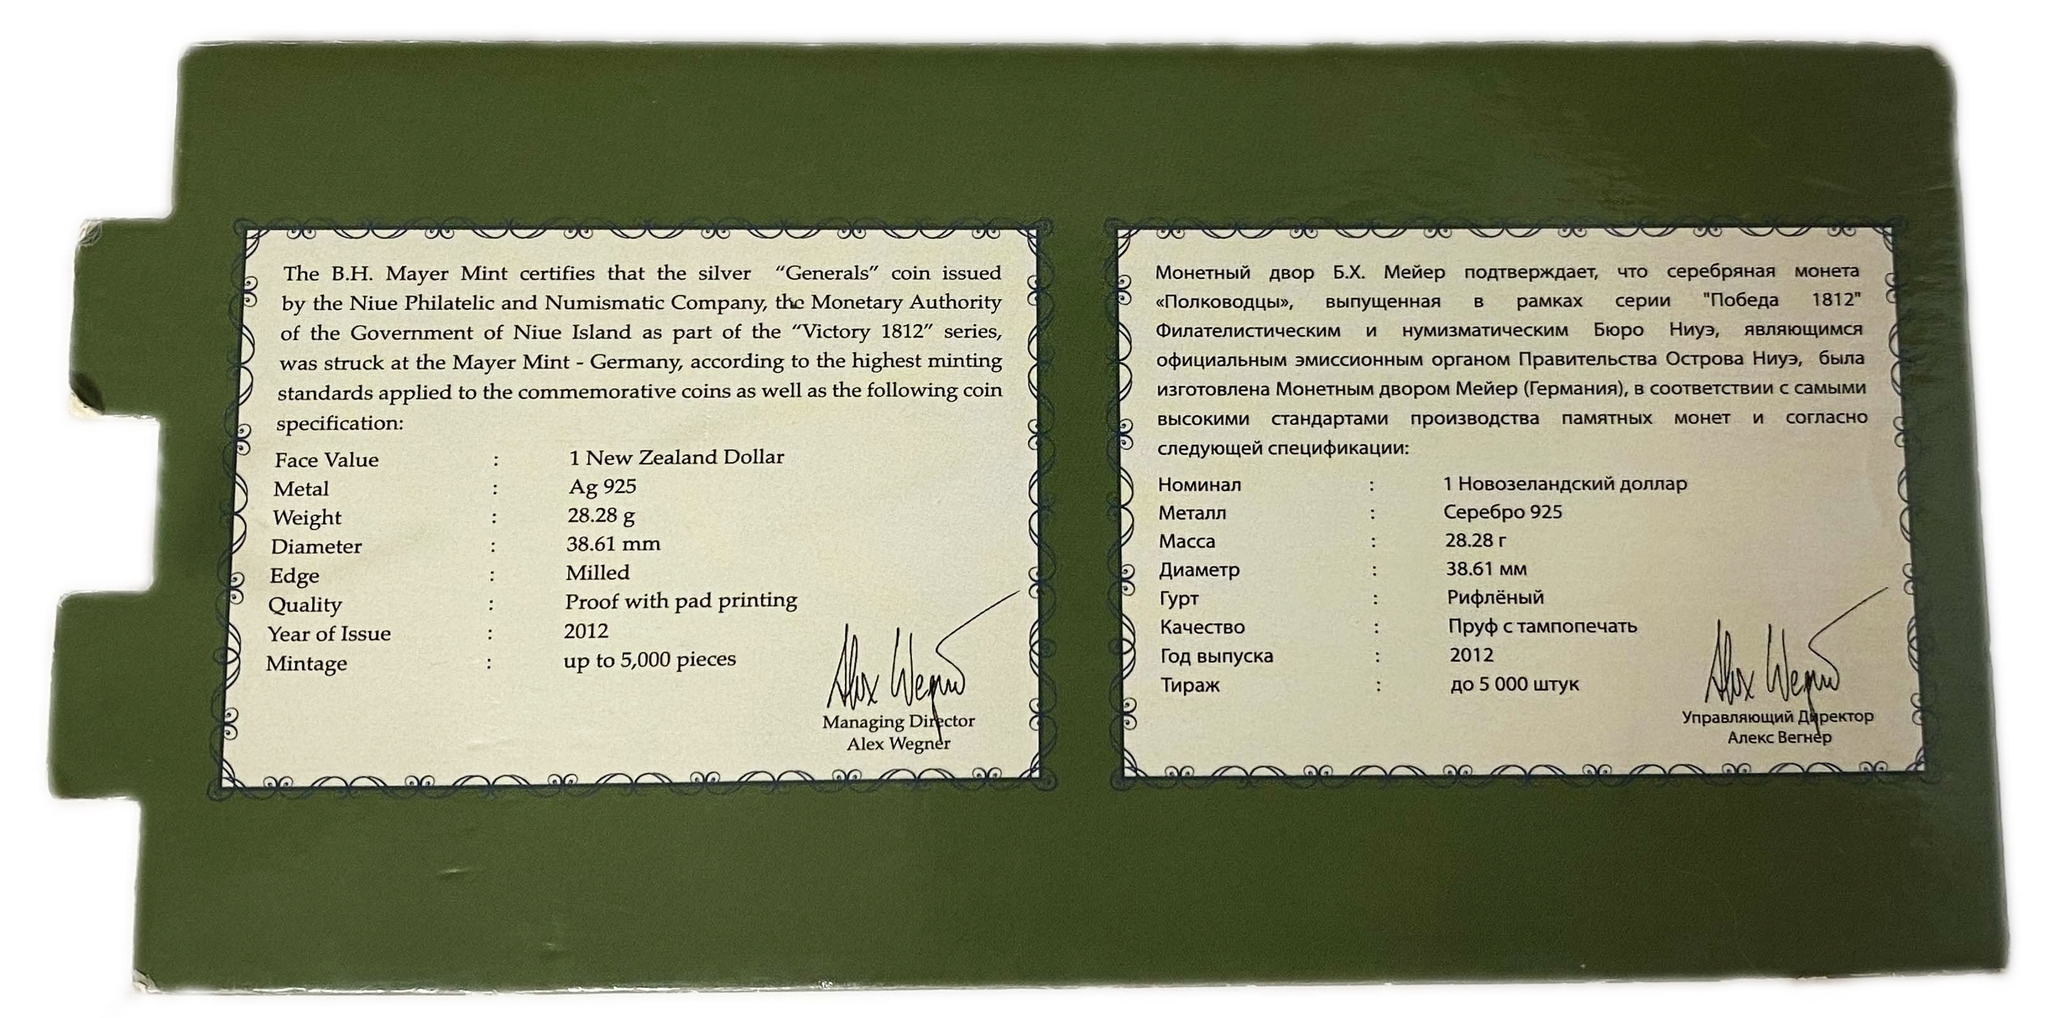 The B.H. Mayer Mint certifies that the silver “Generals” coin issued
by the Niue Philatelic and Numismatic Company, the Monetary Authority
of the Government of Niue Island as part of the “Victory 1812” series,
was struck at the Mayer Mint - Germany, according to the highest minting
standards applied to the commemorative coins as well as the following coin
specification:
Face Value : 1 New Zealand Dollar
Metal : Ag 925
Weight : 28.28 g
Diameter : 38.61 mm
Edge : Milled
Quality : Proof with pad printing
Year of Issue : 2012
Mintage : up to 5,000 pieces
Alex Wegner
Managing Director
Alex Wegner
Монетный двор Б.Х. Мейер подтверждает, что серебряная монета
«Полководцы», выпущенная в рамках серии "Победа 1812"
Филателистическим и нумизматическим Бюро Ниуэ, являющимся
официальным эмиссионным органом Правительства Острова Ниуэ, была
изготовлена Монетным двором Мейер (Германия), в соответствии с самыми
высокими стандартами производства памятных монет и согласно
следующей спецификации:
Номинал : 1 Новозеландский доллар
Металл : Серебро 925
Масса : 28.28 г
Диаметр : 38.61 мм
Гурт : Рифлёный
Качество : Пруф с тампопечать
Год выпуска : 2012
Тираж : до 5 000 штук
Alex Wegner
Управляющий Директор
Алекс Вегнер